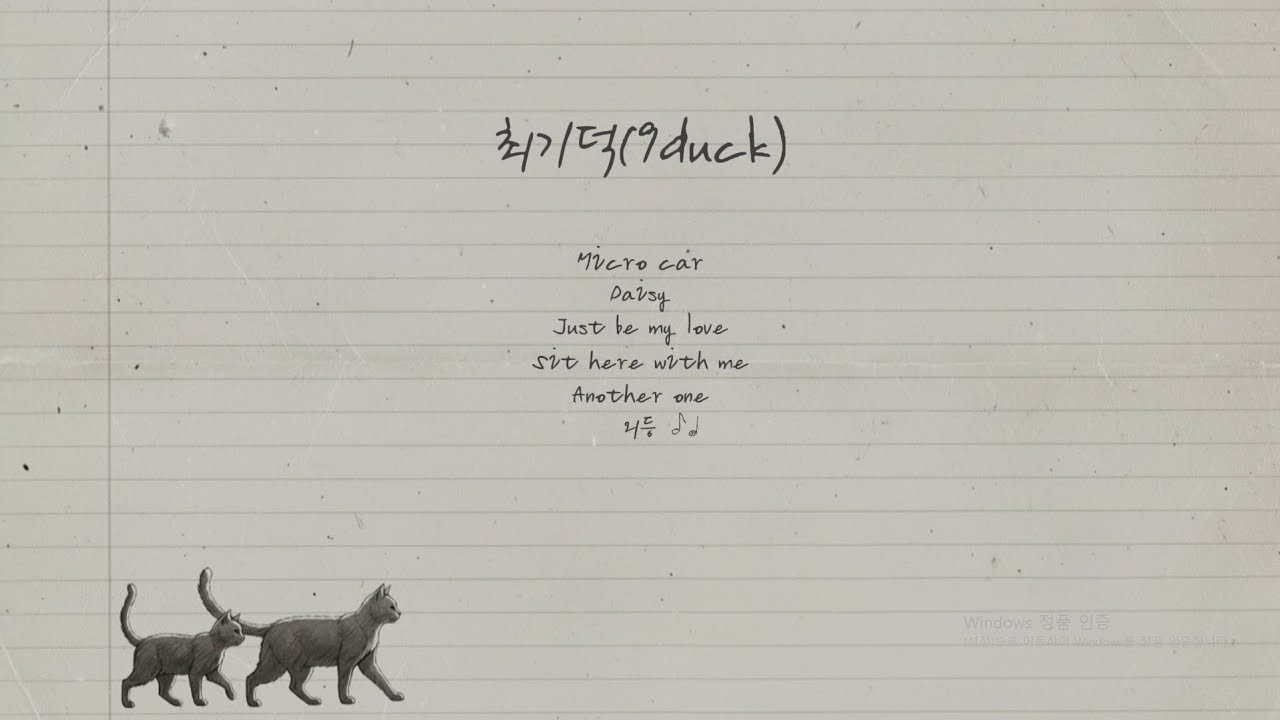 최기덕(9duck)
Micro car
Daisy
Just be my love
Sit here with me
Another one
리듬 ♪♩
Windows 정품 인증
[설정]으로 이동하여 Windows를 정품 인증합니다.